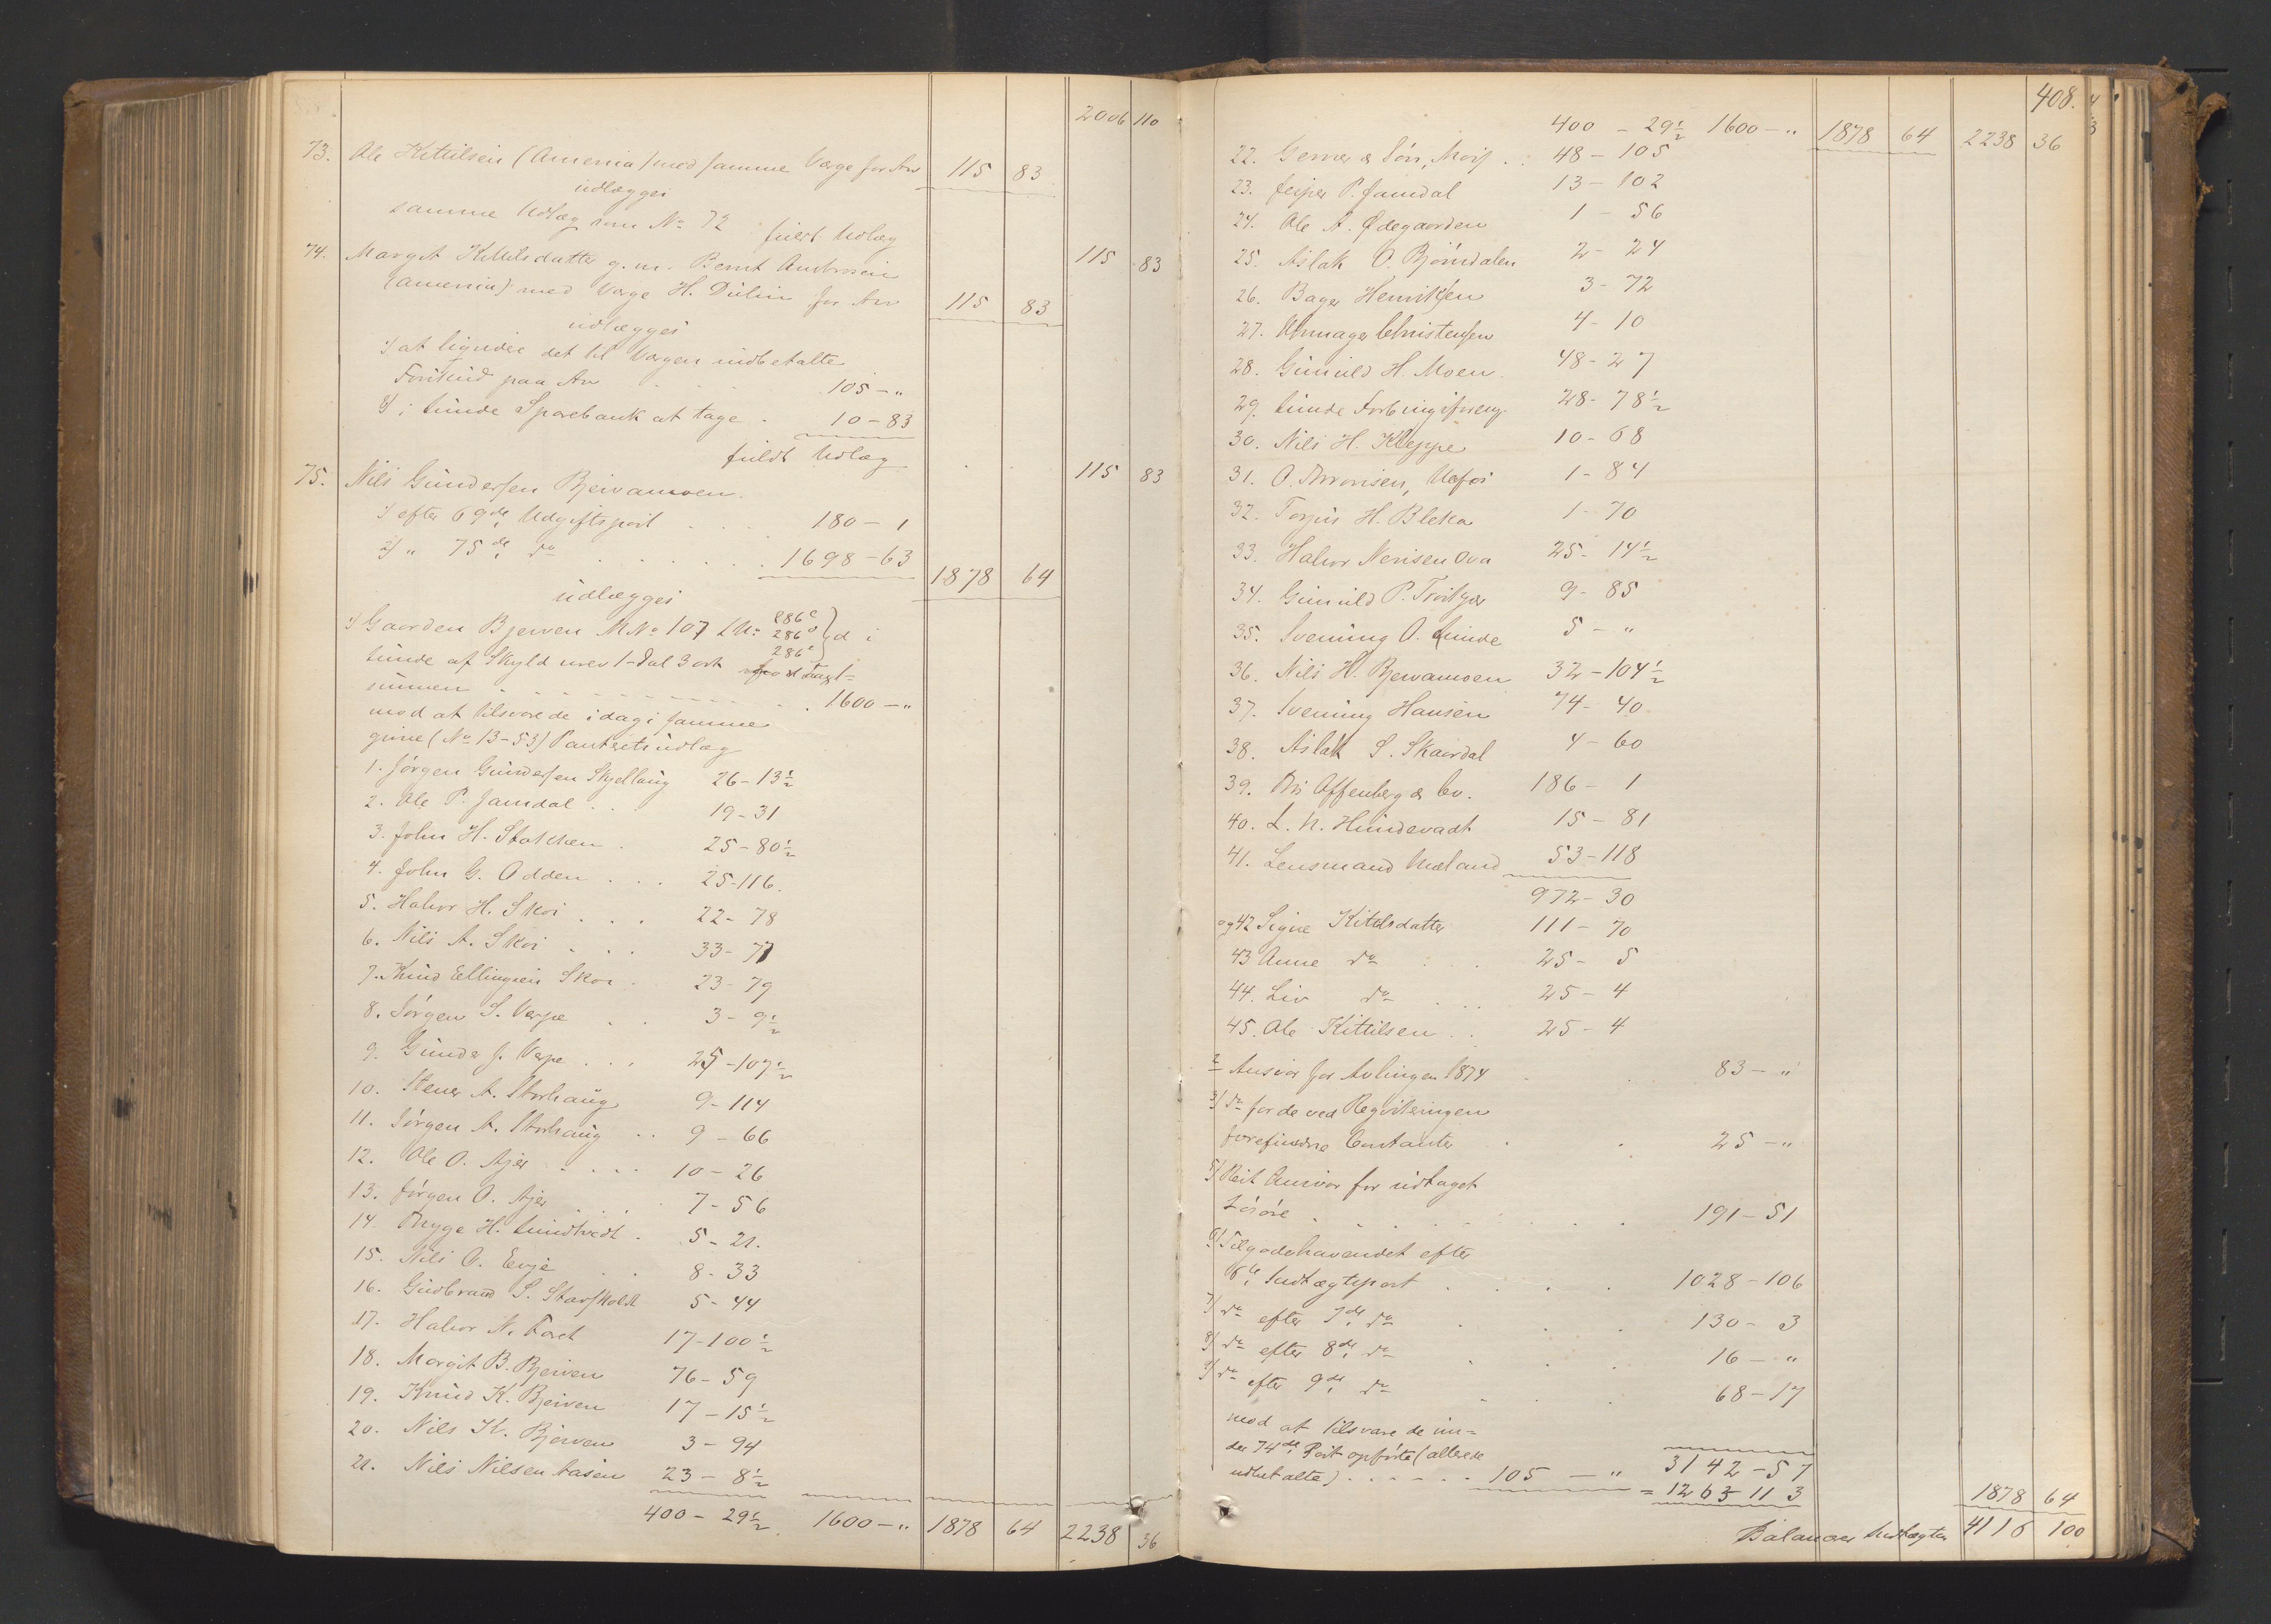 2006 110
73. Ole Kittilsen (Amerika) med samme Værge for Arv 115 83
udlægges
samme Udlæg som No 72 fuldt Udlæg 115 83
74. Margit Kittilsdatter g. m. Bernt
(Amerika) med Værge H. Dulin for Arv 115 83
udlægges
1) at ligvidere det til Værgen indbetalte
Forskud paa Arv 105 - "
2) i Lunde Sparebank at tage 10 - 83
fuldt Udlæg 115 83
75. Nils Gundersen Bjervamoen.
1) efter 69de Udgiftspost 180 - 1
2) " 75de do 1698 - 63 1878 64
udlægges
1) Gaarden Bjerven MNo 107 LNo 286c 286d 286e i
Lunde af Skyld urev 1 Dal 3 ort
summen 1600 - "
mod at tilsvare de idag i samme
givne (No 13-53) Panteretsudlæg
1. Jørgen Gundersen Skjellaug 26 - 13½
2. Ole P. Jamdal 19 - 31
3. John H. Stokken 25 - 80½
4. John G. Odden 25 - 116.
5. Halvor H. Skoi 22 - 78
6. Nils A. Skoi 33 - 77
7. Knud Ellingsen Skoi 23 - 79
8. Jørgen S. Vepe 3 - 9½
9. Gunder J. Vepe 25 - 107½
10. Stener A. Storhaug 9 - 114
11. Jørgen A. Storhaug 9 - 66
12. Ole O. Ajer 10 - 26
13. Jørgen O. Ajer 7 - 56
14. H. Lindtvedt 5 - 21.
15. Nils O. Evje 8 - 33
16. Gudbrand S. 5 - 44
17. Halvor N. 17 - 100½
18. Margit B. Bjerven 76 - 59
19. Knud K. Bjerven 17 - 15½
20. Nils K. Bjerven 3 - 94
21. Nils Nilsen Aasen 23 - 8½
400 - 29½ 1600 - " 1878 64 2238 36
408.
400 - 29½ 1600 - " 1878 64 2238 36
22. & Søn, 48 - 105
23. Jesper P. Jamdal 13 - 102
24. Ole A. Ødegaarden 1 - 56
25. Aslak O. Bjørndalen 2 - 24
26. Bager Henriksen 3 - 72
27. Uhrmager Christensen 4 - 10
28. Gunuld H. Moen 48 - 27
29. Lunde 28 - 78½
30. Nils H. Kleppe 10 - 68
31. O. Ulefos 1 - 84
32. Torjus H. Bleka 1 - 70
33. Halvor Nerisen Ova 25 - 14½
34. Gunuld P. 9 - 85
35. Svenung O. Lunde 5 - "
36. Nils H. Bjervamoen 32 - 104½
37. Svenung Hansen 74 - 40
38. Aslak S. Skaardal 4 - 60
39. Offenberg & Co. 186 - 1
40. L. N. Hundevadt 15 - 81
41. Lensmand Uveland 53 - 118
972 - 30
og 42 Signe Kittelsdatter 111 - 70
43 Anne do 25 - 5
44. Liv do 25 - 4
45. Ole Kittilsen 25 - 4
2 Ansvar for Avlingen 1874 83 - "
3) do for de ved Registeringen
forefundne Contanter 25 - "
5) Rest Ansvar for udtaget
Løsøre 191 - 51
6) Tilgodehavendet efter
6te Indtægtspost 1028 - 106
7) do efter 7de do 130 - 3
8) do efter 8de do 16 - "
9) do efter 9de do 68 - 17
mod at tilsvare de un-
der 74de Post opførte (allerede
udbetalte) 105 - " 3142 - 57
= 1263 113 1878 64
Balancer Indtægten 4116 100